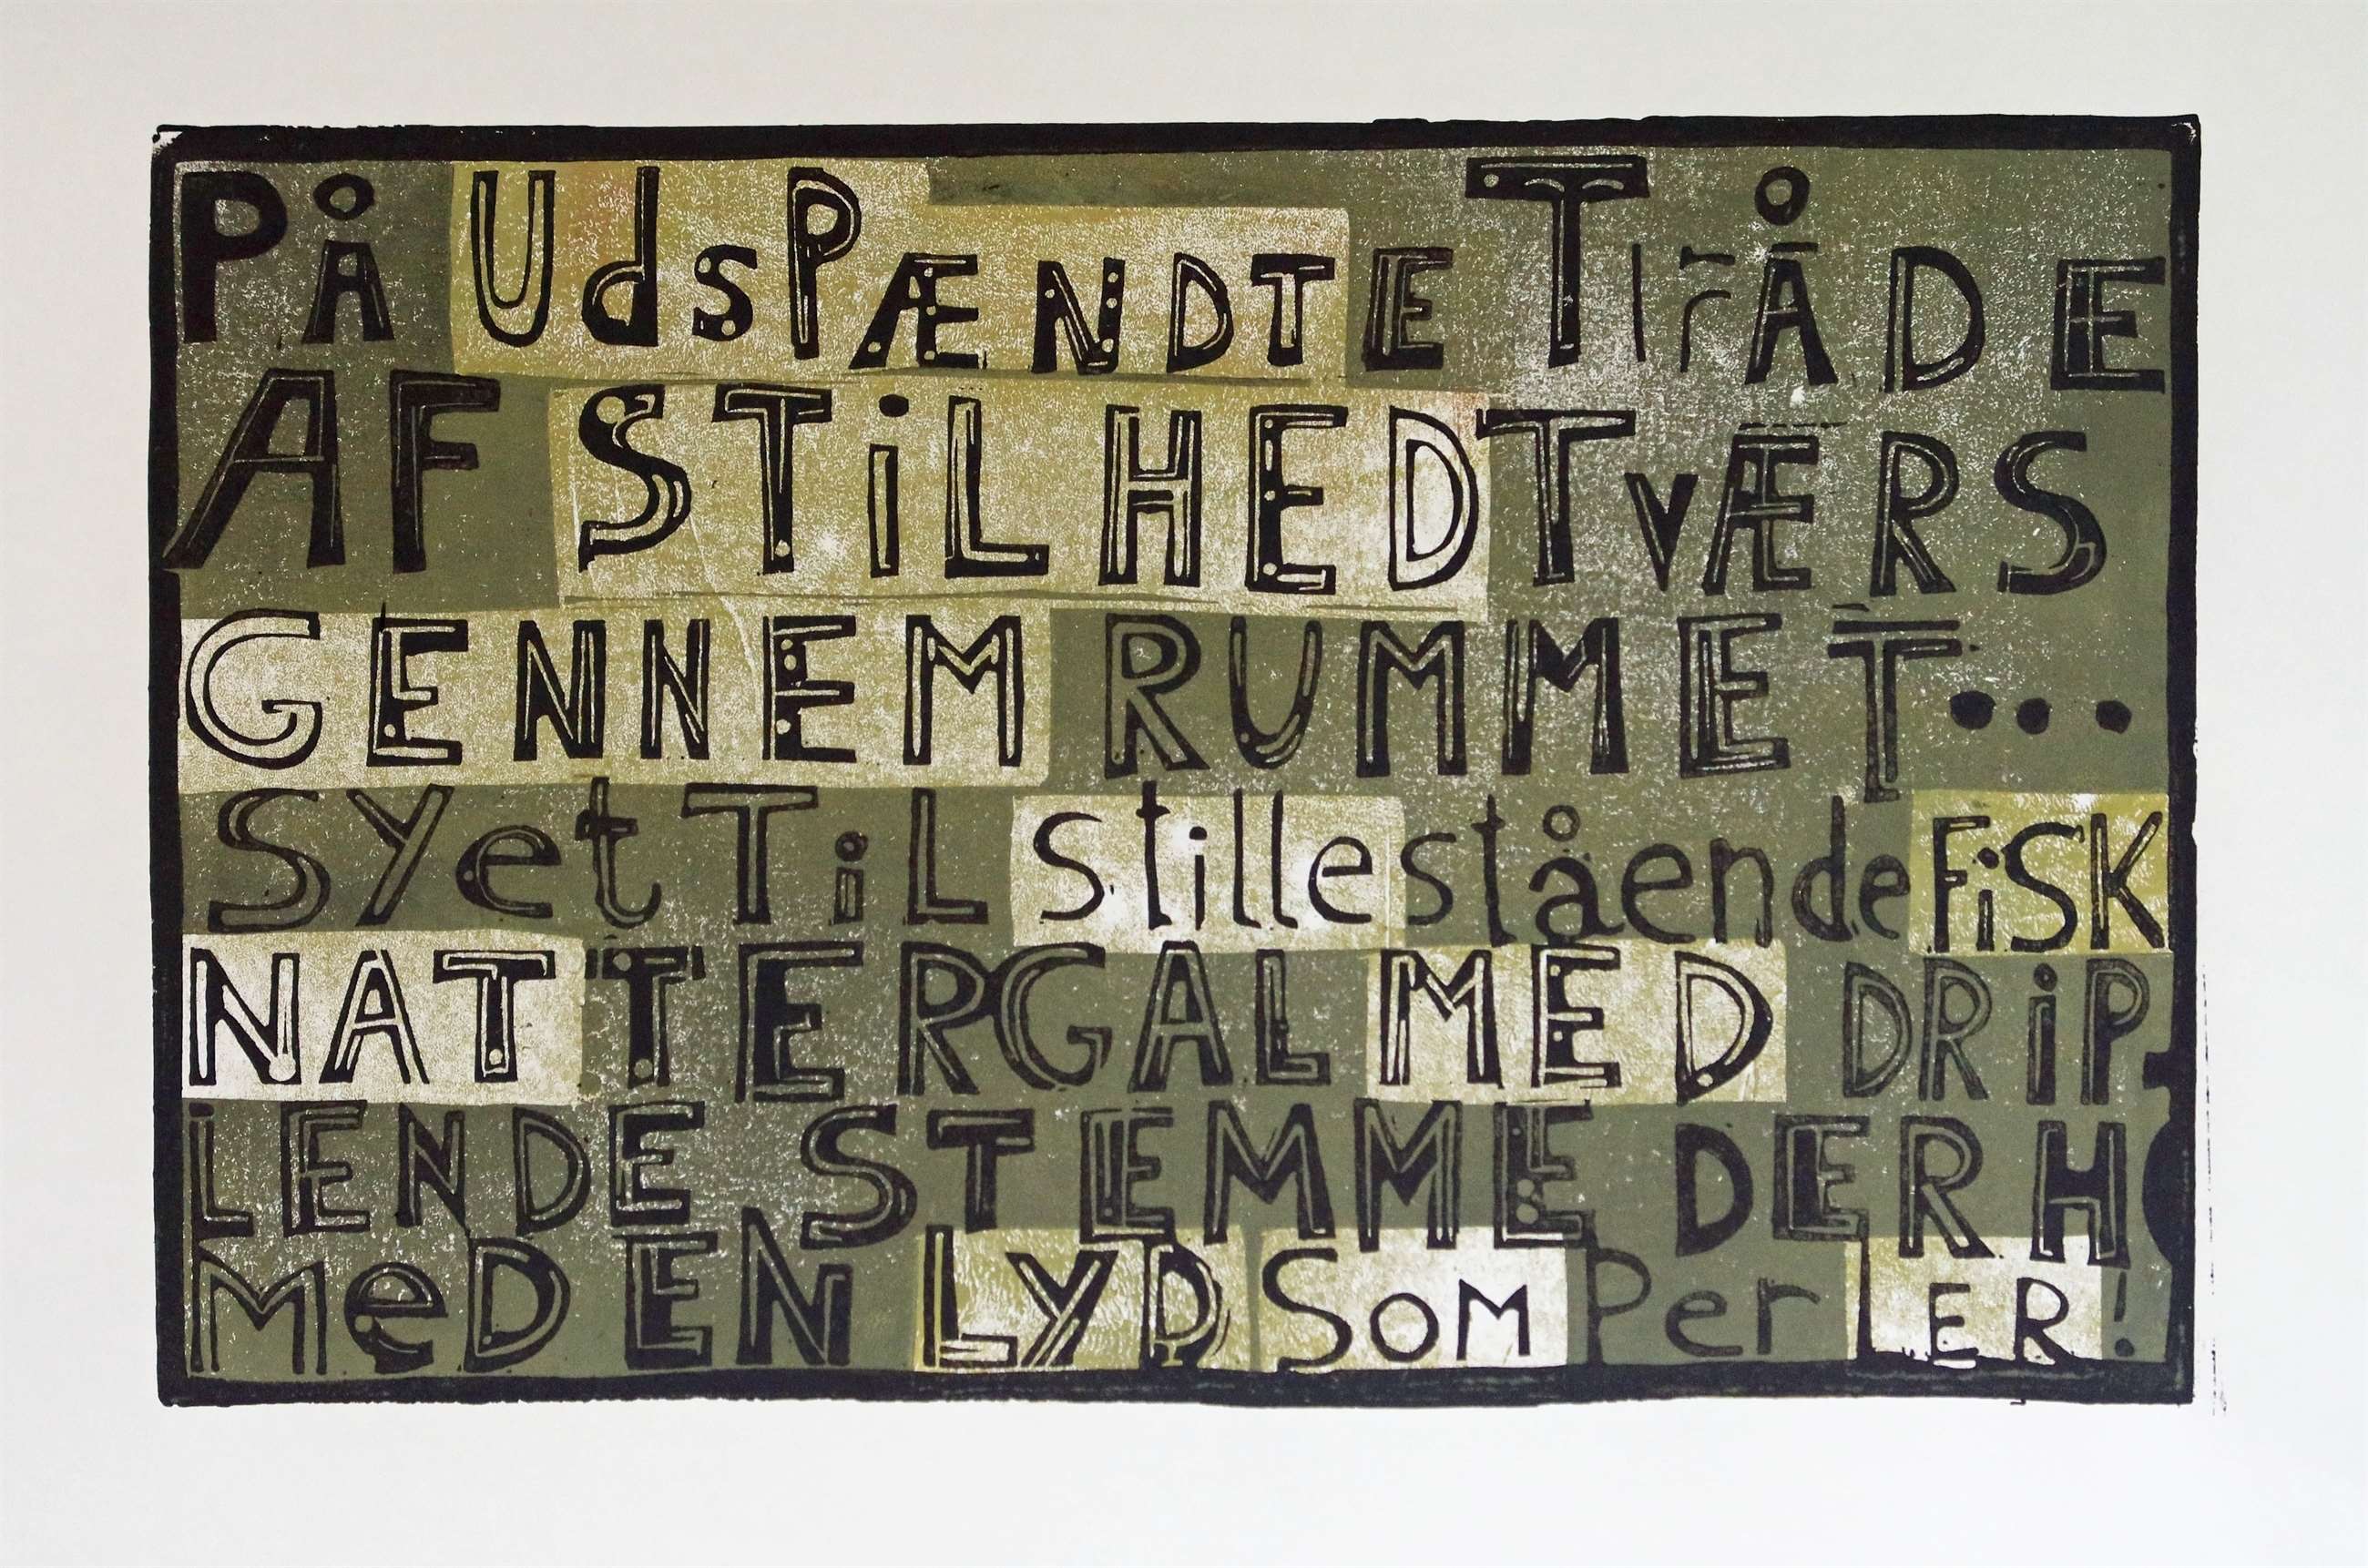 På UdsPÆNDTE TråDE
AF STiLHED TvÆRS
GENNEM RUMMET...
SYet TiL stillestående FiSK
NATTERGAL MED DRiP
LENDE STEMME DER H
MeD EN LYD SOM PerLER!